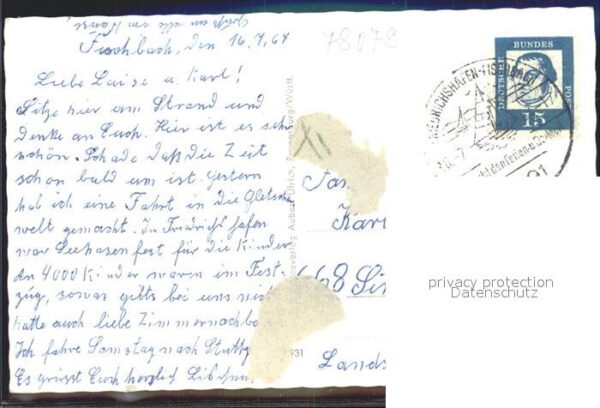 Grüße an alle im Hause
Fischbach, den 16.7.64
78078
Liebe Luise u. Karl!
Sitze hier am Strand und
denke an Euch. Hier ist es sehr
schön. Schade daß die Zeit
schon bald um ist. Gestern
hab ich eine Fahrt in die Gletscher
welt gemacht. In Friedrichshafen
war Seehasenfest für die Kinder
An 4000 Kinder waren im Fest-
zug, sowas gibts bei uns nicht
hatte auch liebe Zimmernachba
Ich fahre Samstag nach Stuttg
Es grüsst Euch herzlich
XI
Fam.
Karl
668 Sin
Lands
931
Aubert Ulrich, Ravensburg/Württ.
DEUTSCHE BUNDESPOST
15
FRIEDRICHSHAFEN-FISCHBACH
privacy protection
Datenschutz